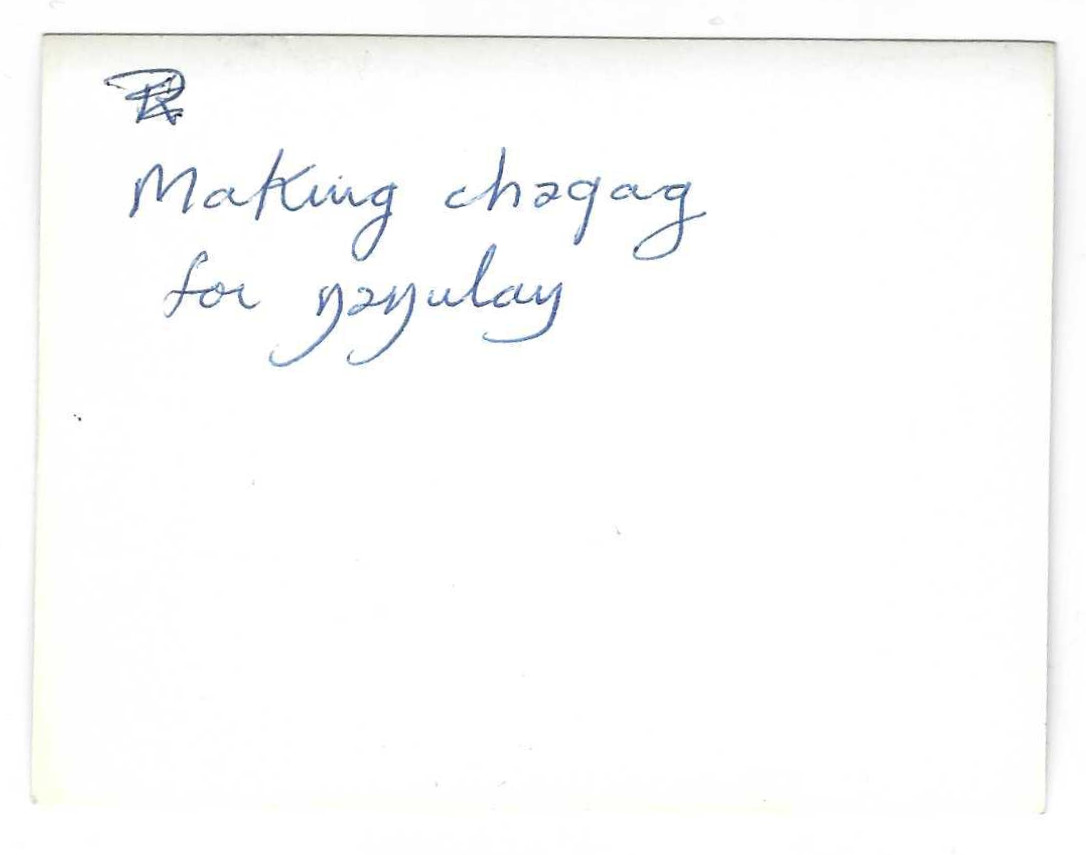 Making chəgag
for ŋəŋulay